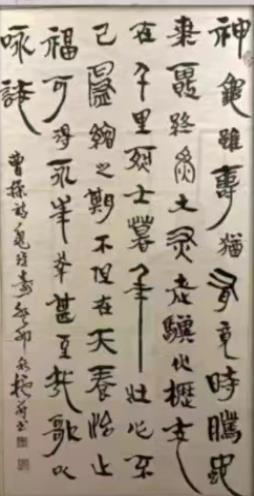 神龜雖壽猶有竟時騰蛇
乘霧終為土灰老驥伏櫪志
在千里烈士暮年壯心不
已盈縮之期不但在天養怡之
福可得永年幸甚至哉歌以
咏詩
曹操詩龜雖壽